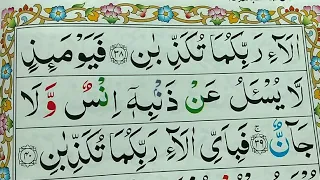 اٰلَآءِ رَبِّكُمَا تُكَذِّبٰنِ ﴿۳۸﴾ فَيَوْمَئِذٍ
لَّا يُسْـَٔلُ عَنْ ذَنْۢبِهٖٓ اِنْسٌ وَّلَا
جَآنٌّ ﴿۳۹﴾ۚ فَبِاَىِّ اٰلَآءِ رَبِّكُمَا تُكَذِّبٰنِ ﴿۴۰﴾